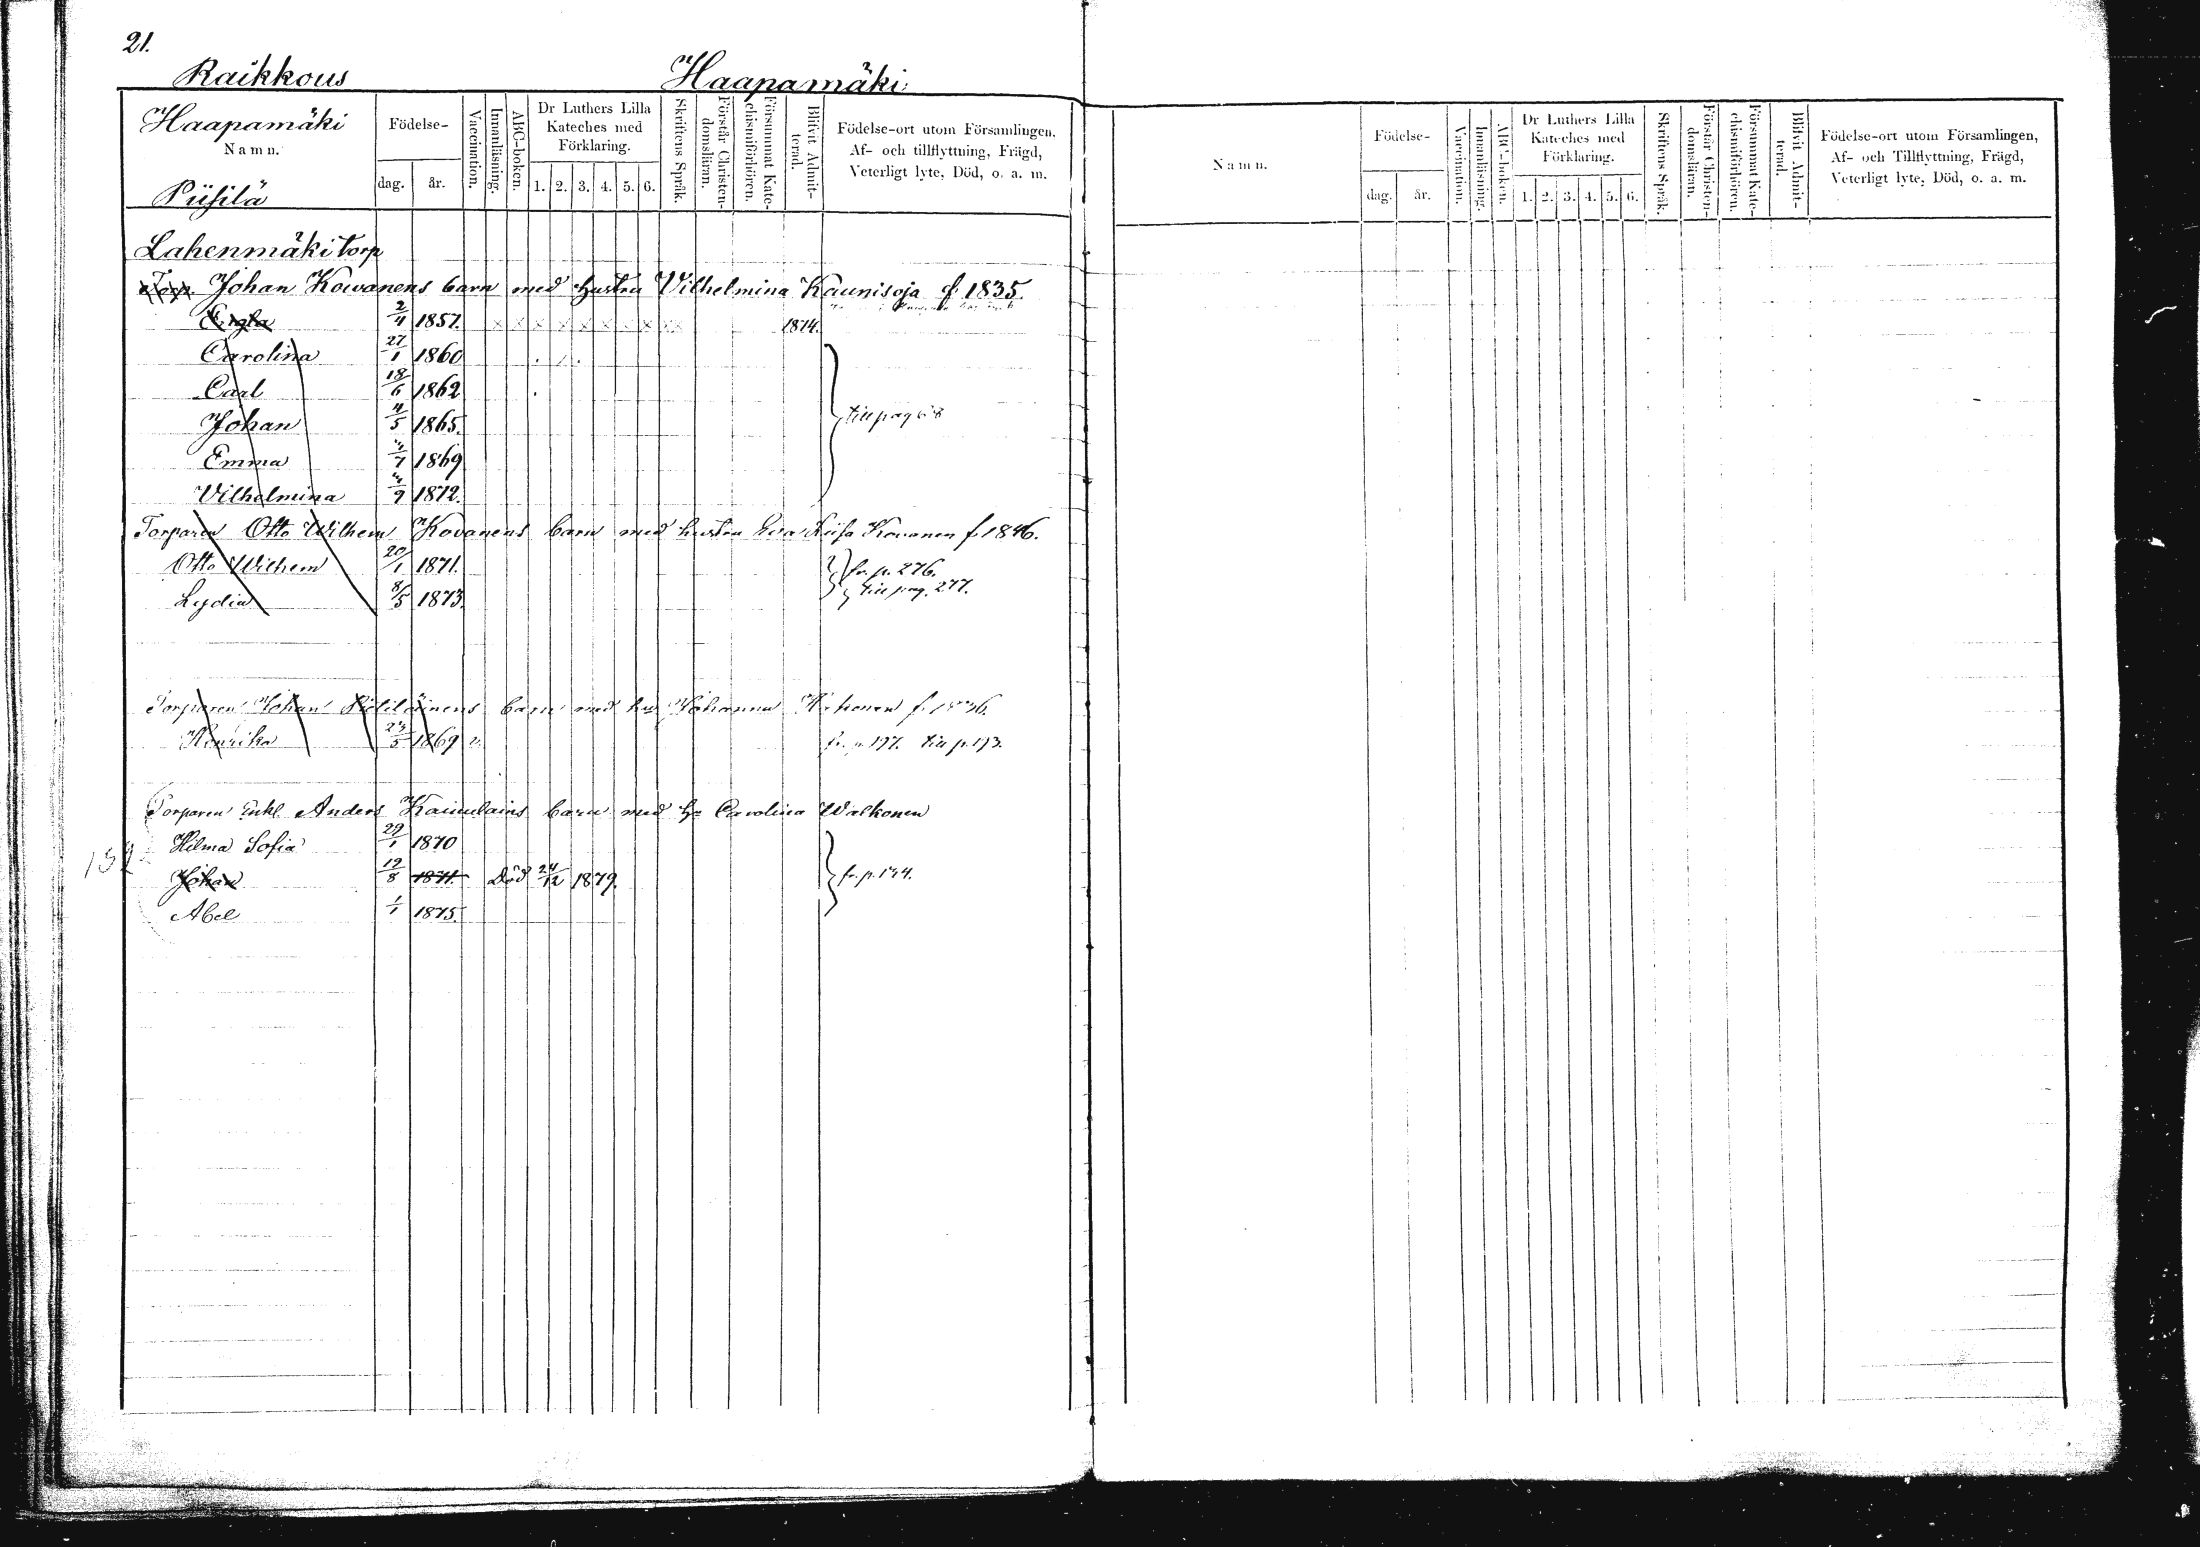 21.
Raikkous Haapamäki
Haapamäki
Namn.
Piisilä
Födelse-
dag. år.
Vaccination.
Innanläsning.
ABC-boken.
Dr Luthers Lilla
Kateches med
Förklaring.
1. 2. 3. 4. 5. 6.
Skriftens Språk.
Förstår Christen-
domsläran.
Försummat Kate-
chismiförhören.
Blifvit Admit-
terad.
Födelse-ort utom Församlingen,
Af- och tillflyttning, Frägd,
Veterligt lyte, Död, o. a. m.
Namn.
Födelse-
dag. år.
Vaccination.
Innanläsning.
ABC-boken.
Dr Luthers Lilla
Kateches med
Förklaring.
1. 2. 3. 4. 5. 6.
Skriftens Språk.
Förstår Christen-
domsläran.
Försummat Kate-
chismiförhören.
Blifvit Admit-
terad.
Födelse-ort utom Församlingen,
Af- och Tillflyttning, Frägd,
Veterligt lyte, Död, o. a. m.
Lahenmäki torp
Torp. Johan Kowanens barn med hustru Vilhelmina Kaunisoja f. 1835.
2/4 1857. x x x x x x x x x x 1874.
Carolina 27/1 1860
Carl 18/6 1862
Johan 4/5 1865. till pag 68
Emma /7 1869
Vilhelmina /9 1872.
Torparen Otto Wilhem Kovanens barn med hustru Eva Lisa Kovanen f. 1846.
Otto Wilhem 20/1 1871. fr. p. 276.
Lydia 8/5 1873. till pag. 277.
Torparen Johan barn med hu Johanna f.
Henrika 23/5 1869 v. fr. p. 197. till p. 193.
Torparen Enkl. Anders Kaimulains barn med hu Carolina Walkonen
Hilma Sofia 29/1 1870
152
Johan 12/8 1871. Död 24/12 1879. fr. p. 194.
Abel 1/1 1875.